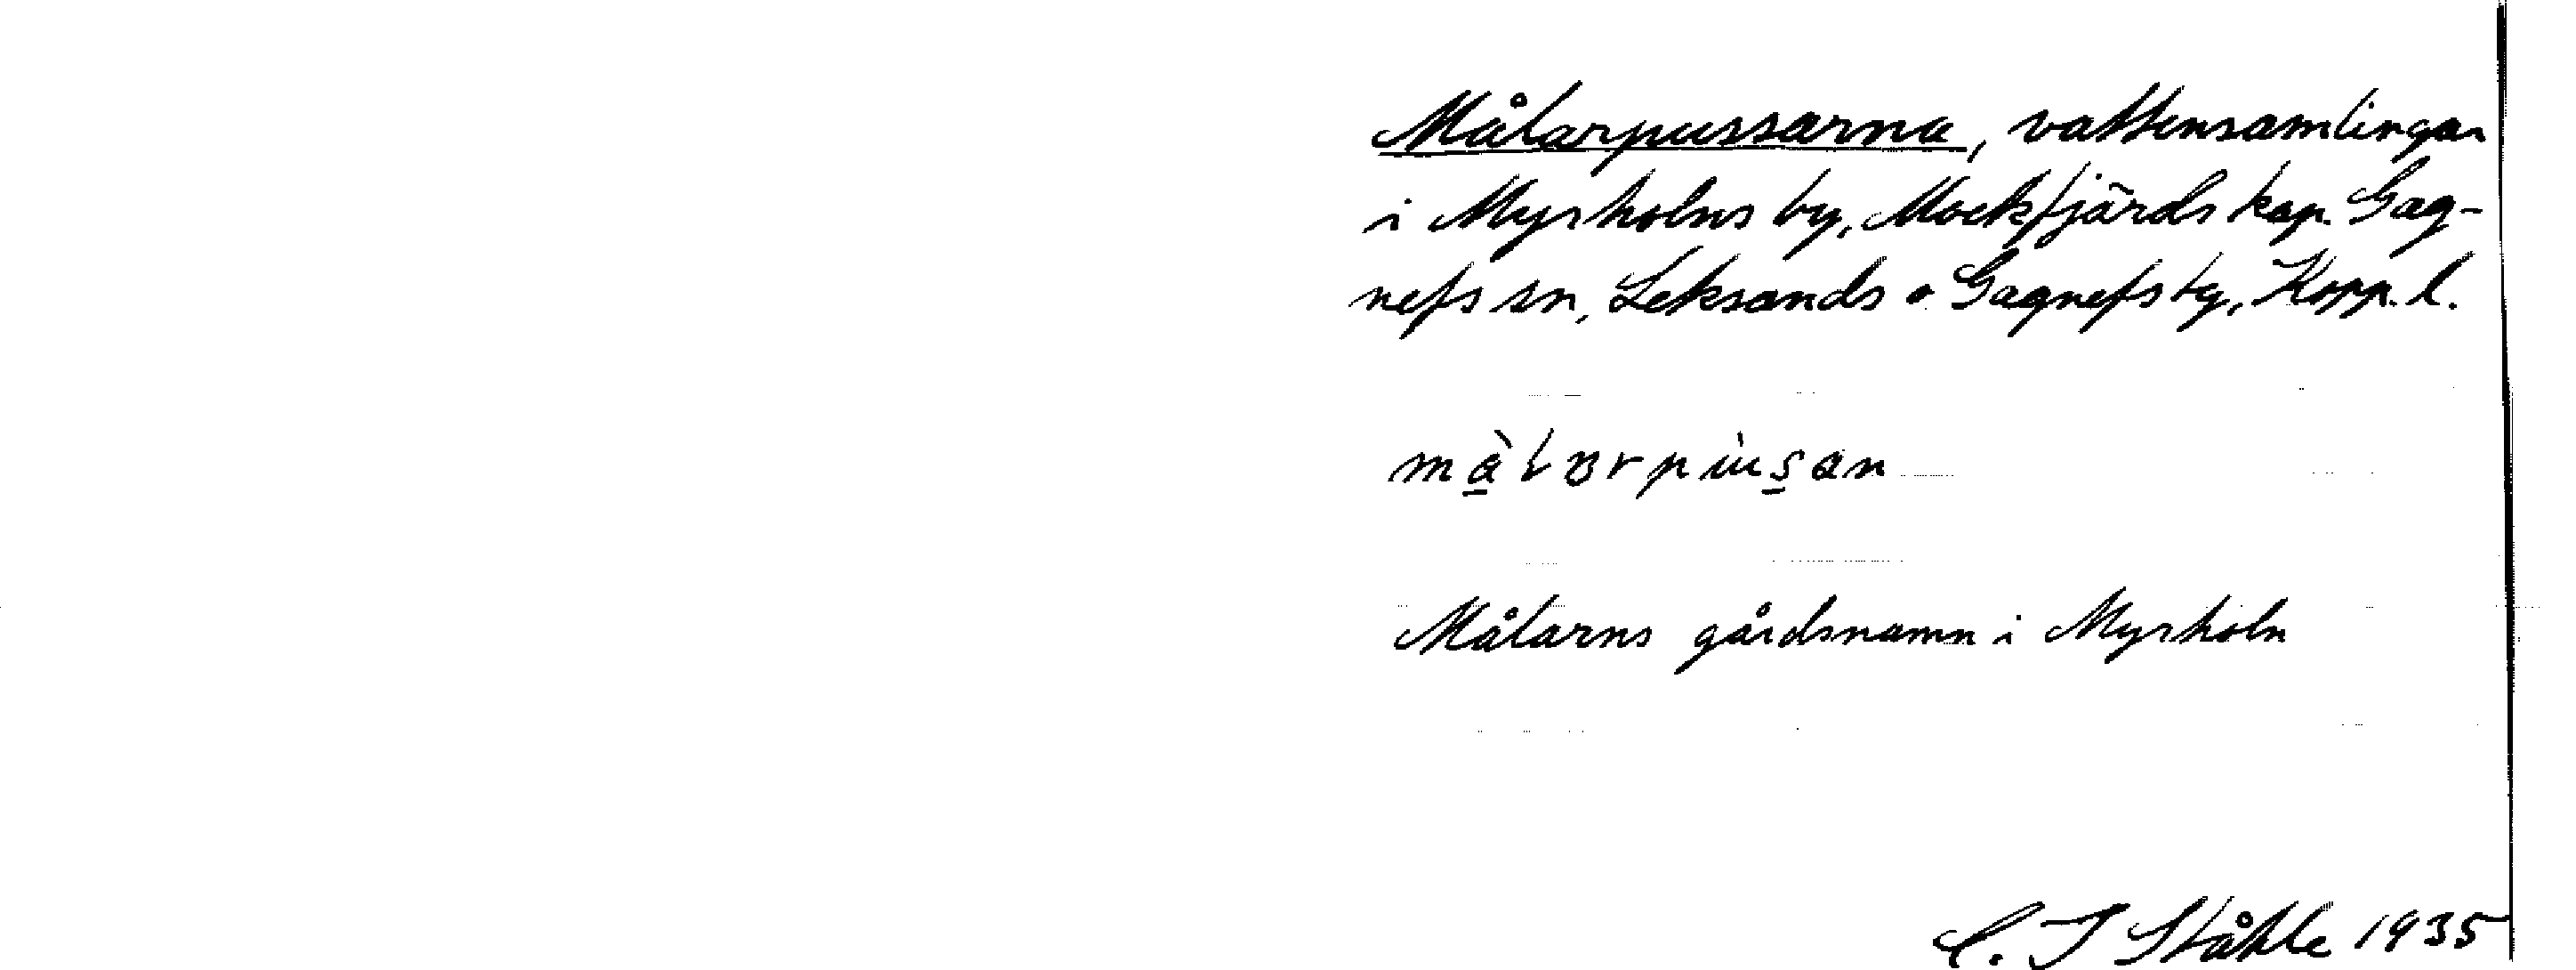 Målarpussarna, vattensamlingar
i Myrholns by, Mockfjärds kap. Gag-
nefs sn, Leksands o Gagnefs tg, Kopp. l.
Målarns gårdsnamn i Myrholn
C. I Ståhle 1935